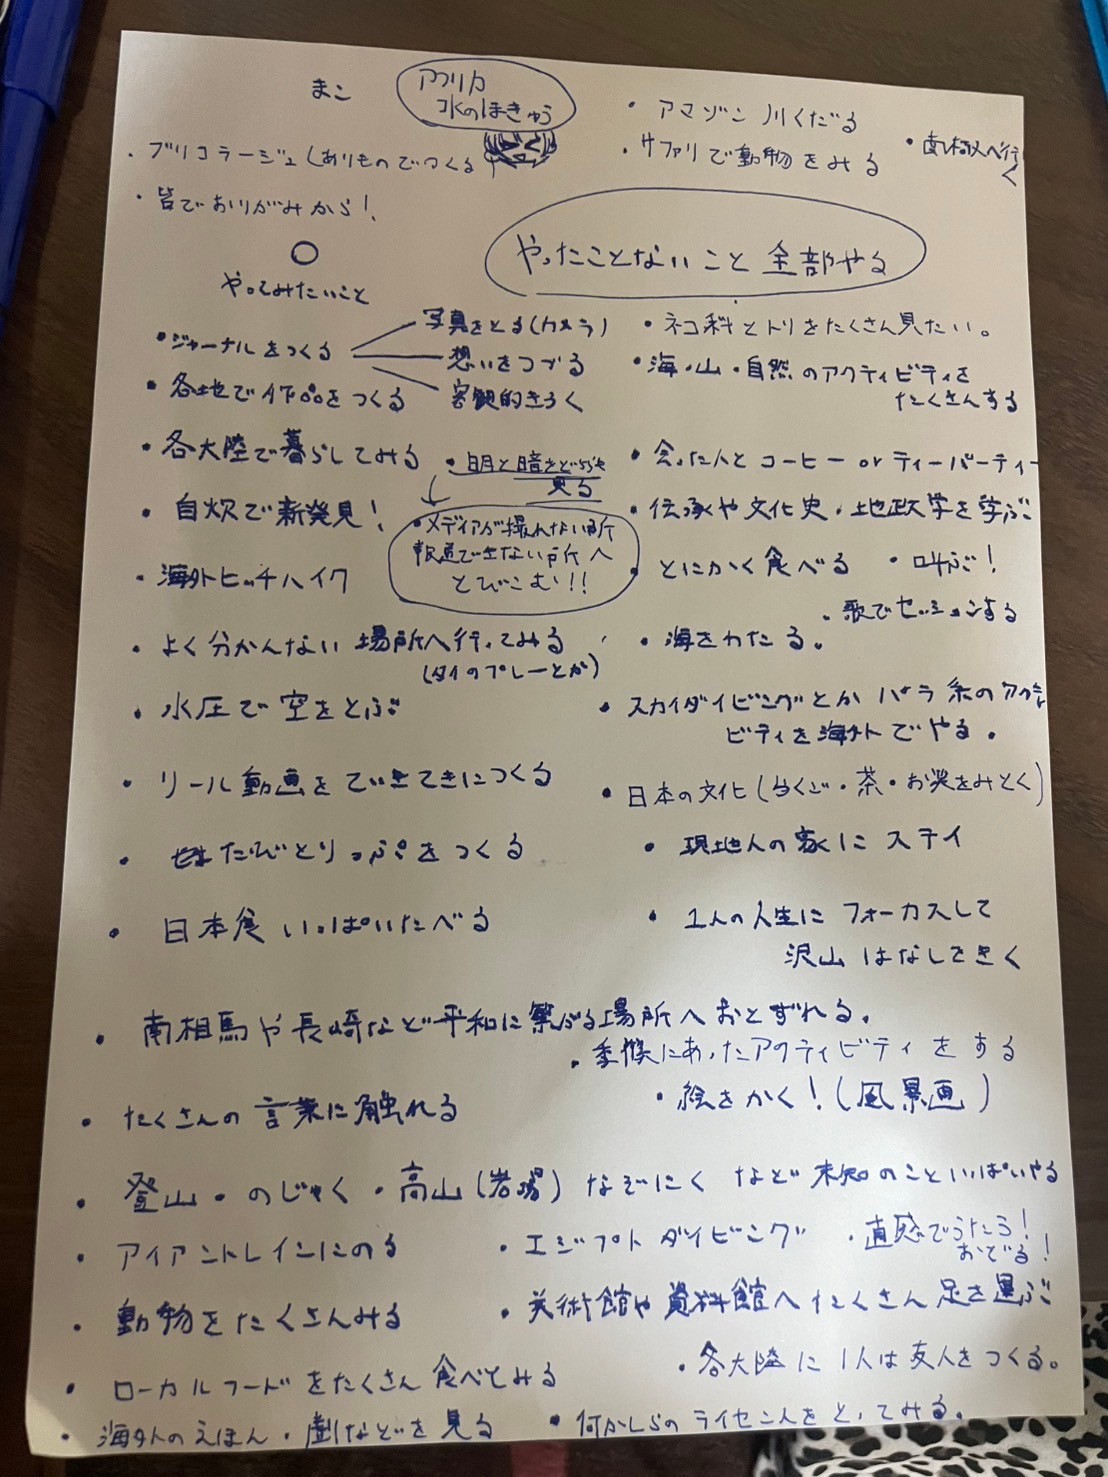 まこ
アフリカ
水のほきゅう
・アマゾン 川くだる
・サファリで動物をみる
・南極へ行
く
・ブリコラージュ(ありものでつくる
・皆でおりがみから!
やったことないこと 全部やる
○
やってみたいこと
・ジャーナルをつくる
写真をとる(カメラ)
想いをつづる
客観的きろく
・ネコ科とトリをたくさん見たい。
・海・山・自然のアクティビティを
たくさんする
・各地で作品をつくる
・各大陸で暮らしてみる
・明と暗をどちらも
見る
・会った人とコーヒー or ティーパーティー
・自炊で新発見!
・メディアが撮れない所
報道できない所へ
とびこむ!!
・伝承や文化史・地政学を学ぶ
・海外ヒッチハイク
・とにかく食べる
・叫ぶ!
・歌でセッションする
・よく分かんない場所へ行ってみる
(タイのプレーとか)
・海をわたる。
・水圧で空をとぶ
・スカイダイビングとか パラ系のアクティ
ビティを海外でやる。
・リール動画をていきてきにつくる
・日本の文化(らくご・茶・お笑をみとく)
・たびとりっぷをつくる
・現地人の家にステイ
・日本食いっぱいたべる
・1人の人生にフォーカスして
沢山はなしをきく
・南相馬や長崎など平和に繋がる場所へおとずれる。
・季候にあったアクティビティをする
・たくさんの言葉に触れる
・絵をかく!(風景画)
・登山・のじゅく・高山(岩場)なぞにくなど未知のこといっぱいやる
・アイアントレインにのる
・エジプトダイビング
・直感でうたう!
おどる!
・動物をたくさんみる
・美術館や資料館へたくさん足を運ぶ
・ローカルフードをたくさん食べてみる
・各大陸に1人は友人をつくる。
・海外のえほん・劇などを見る
・何かしらのライセンスをとってみる。